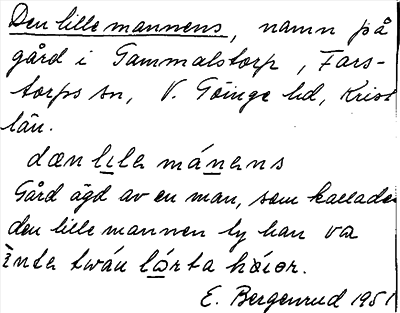 Den lille mannens, namn på
gård i Gammalstorp, Fars-
torps sn, V. Göinge hd, Krist
län.
dæn lilə mánəns
Gård ägd av en man, som kallades
den lille mannen ty han va
inte twáu lórta høier.
E. Bergenrud 1951